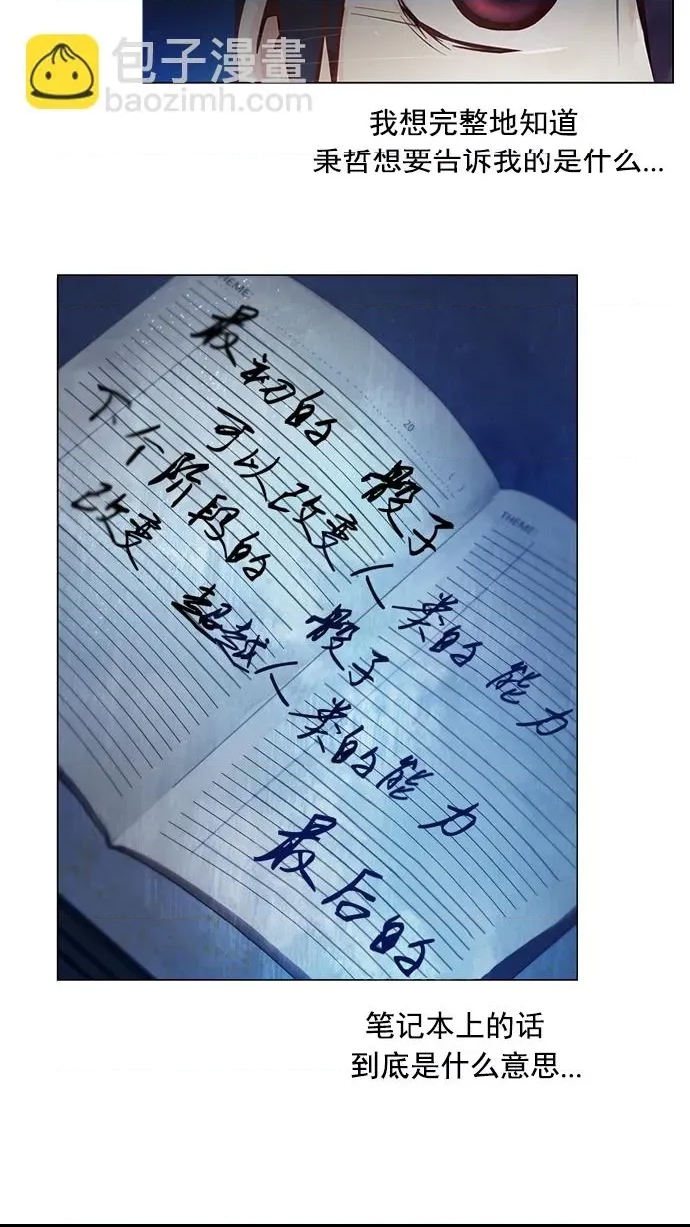 包子漫畫
baozimh.com
我想完整地知道
秉哲想要告诉我的是什么...
THEME:
最初的 骰子
可以改变人类的能力
20
THEME
下个阶段的 骰子
改变 超越人类的能力
最后的
笔记本上的话
到底是什么意思...